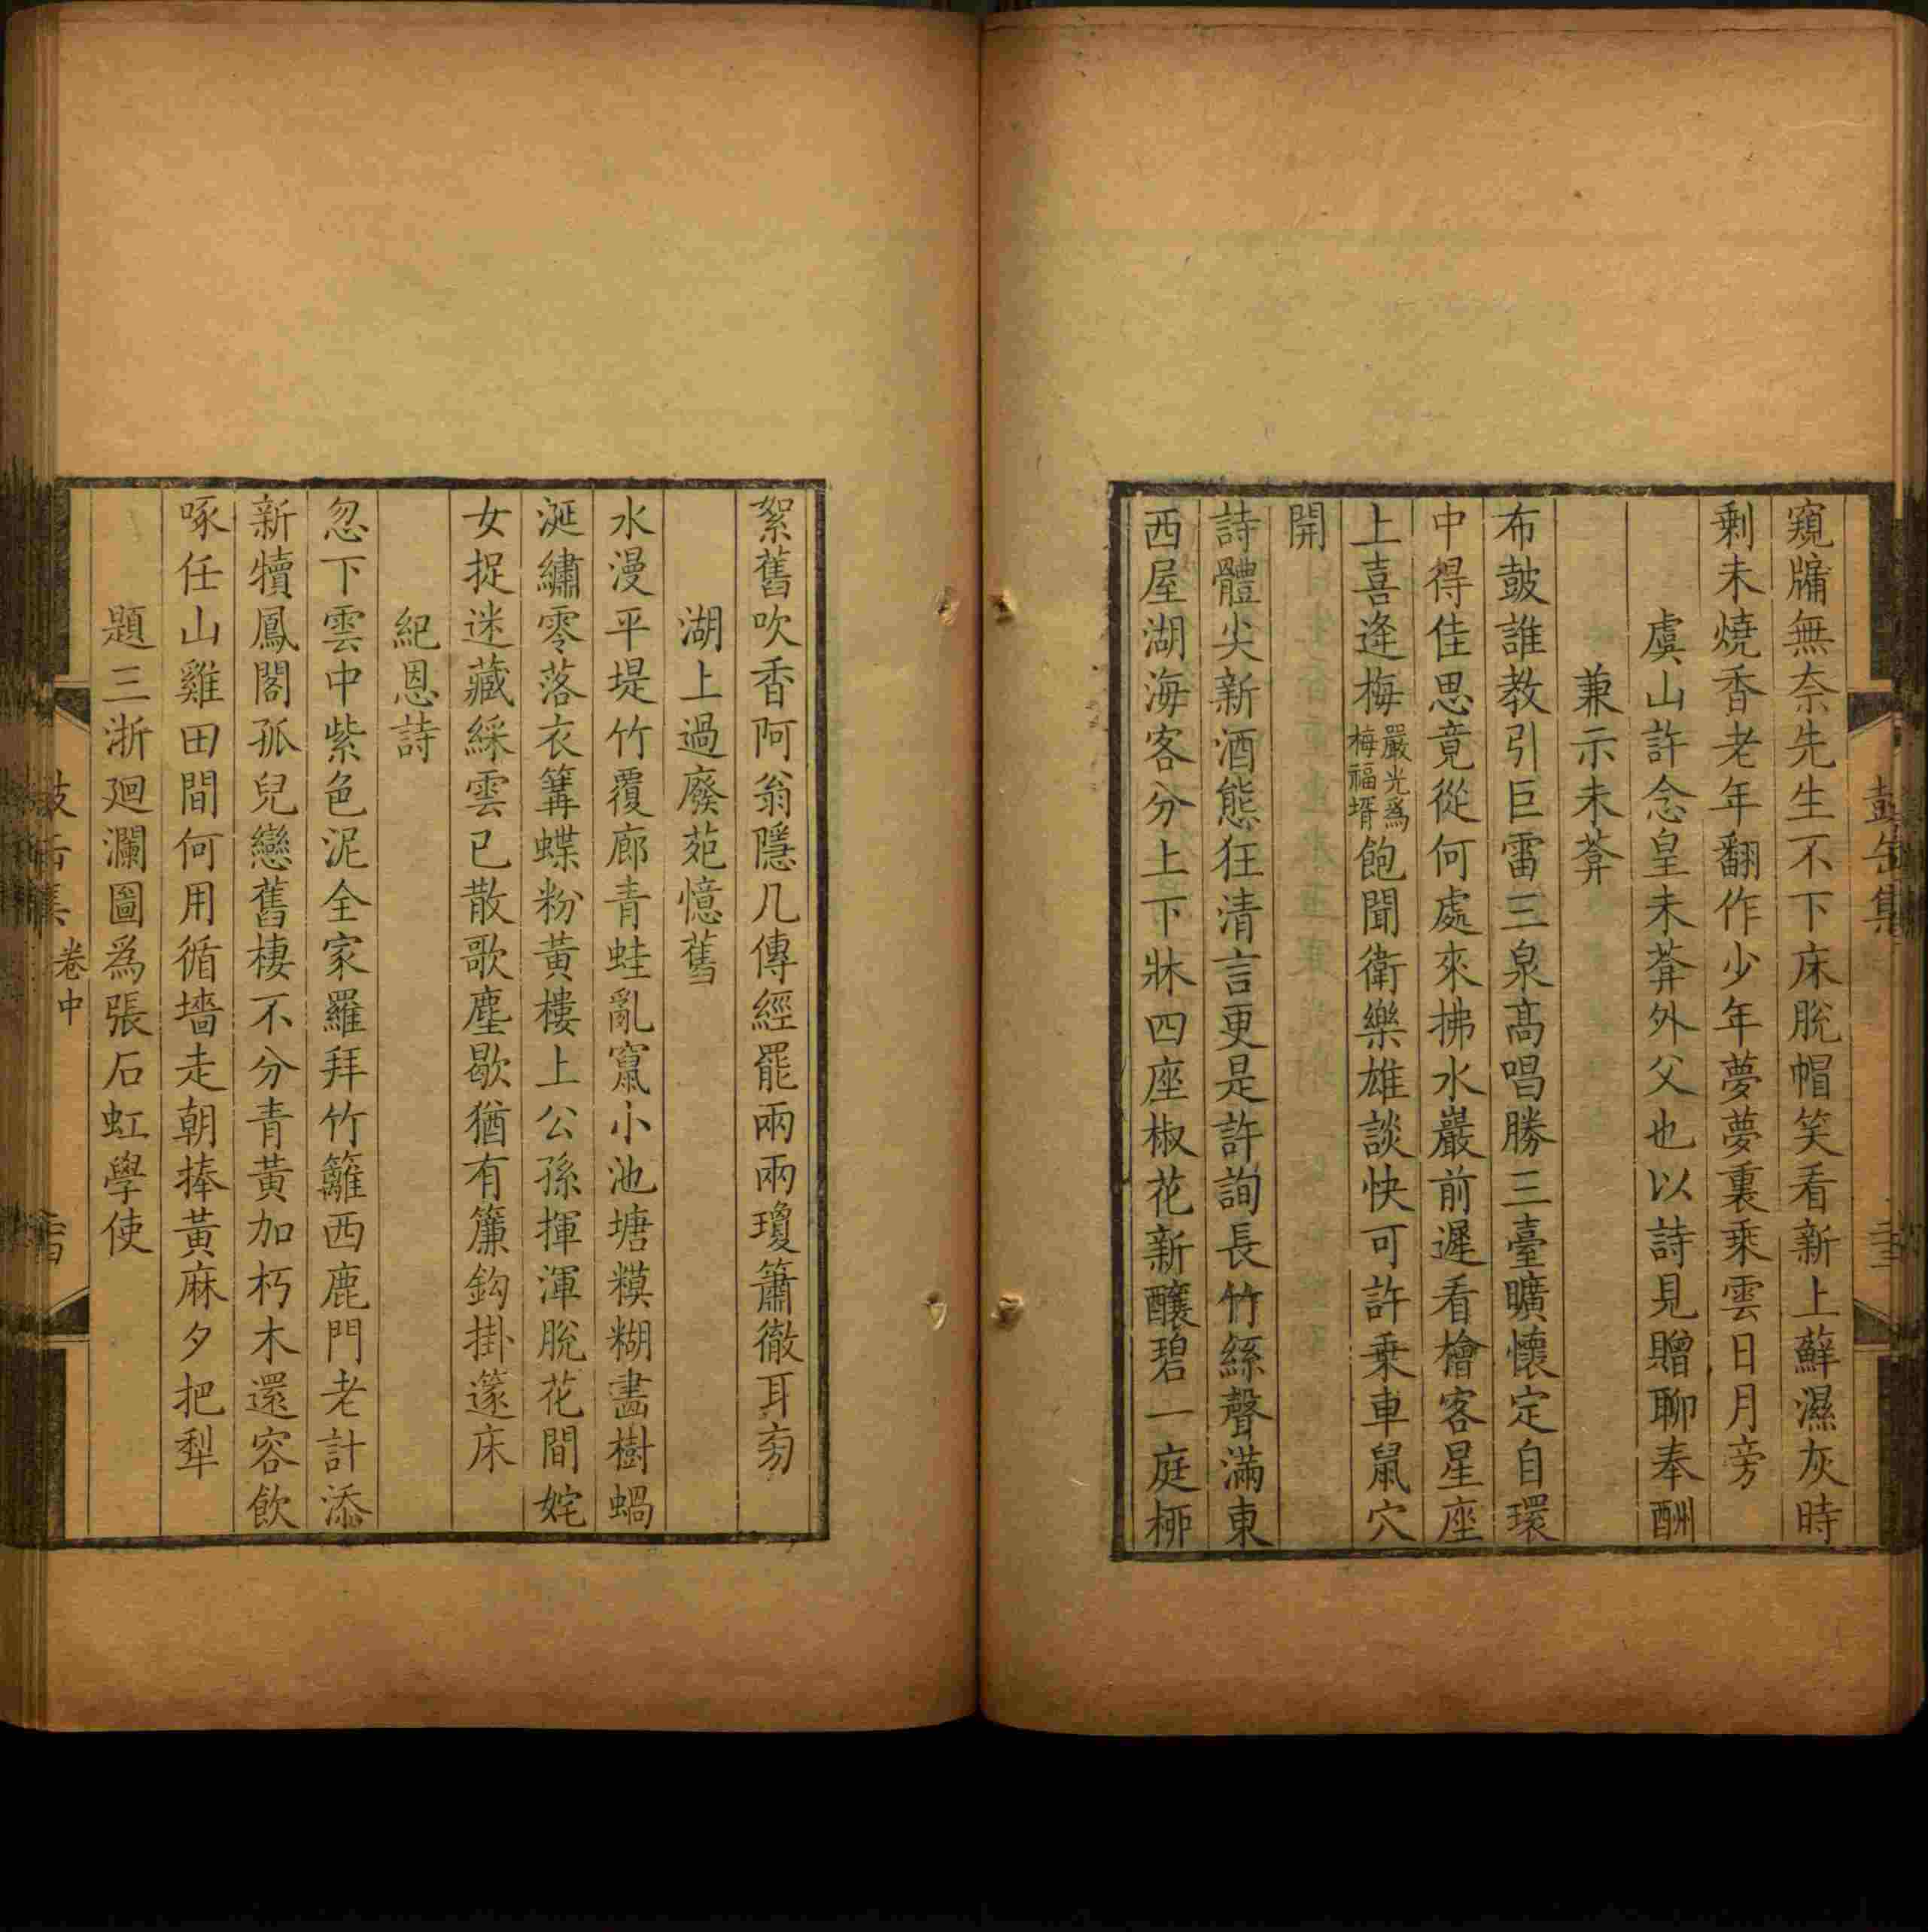 窺牖無奈先生不下床脫帽笑看新上蘚濕灰時
剩未燒香老年翻作少年夢夢裏乘雲日月旁
虞山許念皇未葊外父也以詩見贈聊奉酬
兼示未葊
布皷誰教引巨雷三泉高唱勝三臺曠懷定自環
中得佳思竟從何處來拂水巖前遲看檜客星座
上喜逢梅嚴光爲梅福壻飽聞衛樂雄談快可許乗車鼠穴
開
詩體尖新酒態狂清言更是許詢長竹絲聲滿東
西屋湖海客分上下牀四座椒花新釀碧一庭栁
絮舊吹香阿翁隱几傳經罷兩兩瓊簫徹耳旁
湖上過廢苑憶舊
水漫平堤竹覆廊青蛙亂竄小池塘糢糊畫樹蝸
涎繡零落衣篝蝶粉黃樓上公孫揮渾脫花間姹
女捉迷藏綵雲已散歌塵歇猶有簾鈎掛籧床
紀恩詩
忽下雲中紫色泥全家羅拜竹籬西鹿門老計添
新犢鳳閣孤兒戀舊棲不分青黃加朽木還容飲
啄任山雞田間何用循墻走朝捧黃麻夕把犁
題三浙廻瀾圖爲張石虹學使
鼓缶集
卷中